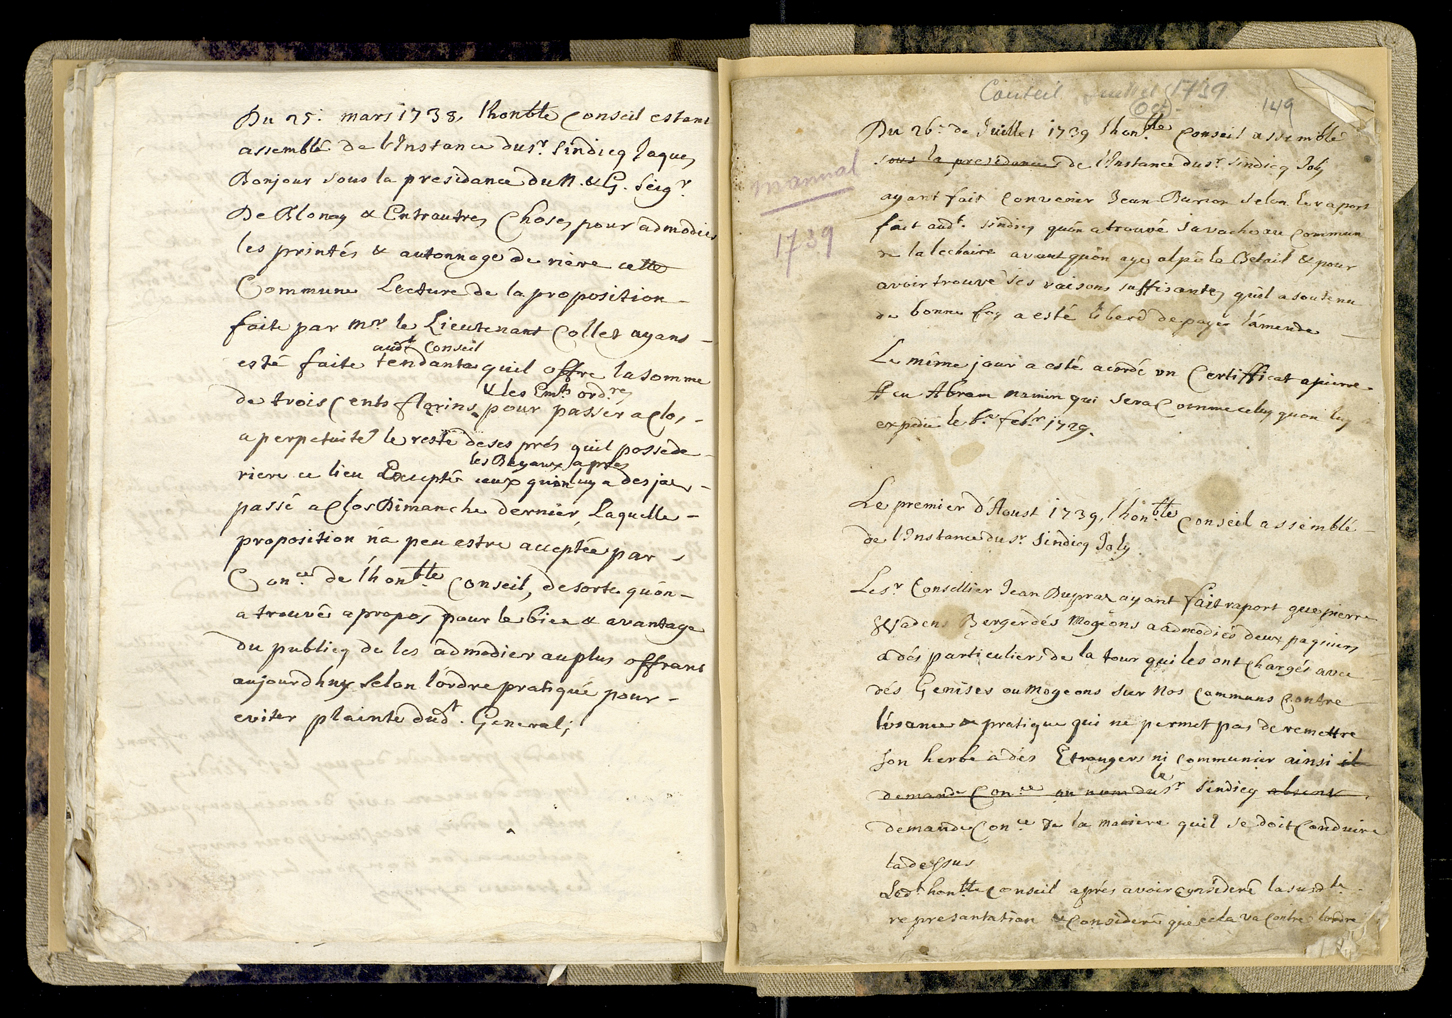 Du 25: mars 1738, l'honble Conseil estant
assemblé de l'Instance du sr. Sindicq Jaques
Bonjour sous la presidance du N. & G. Seigr
De Blonay & Entrautres Choses pour admodier
les printés & automnage de riere cette
Commune Lecture de la proposition
faite par mr. le Lieutenant Collet ayans
audt Conseil
esté faite tendante quil offre la somme
& les Emts ordres
de trois Cents florins, pour passer a Clos,
a perpetuité le reste de ses prés quil possede
les Bayaux apres
riere ce lieu Excepté ceux qu'on luy a desja
passé a Clos Dimanche dernier, Laquelle
proposition n'a peu estre acceptée par
Conce de l'honble Conseil, de sorte qu'on
a trouvé a propos pour le bien & avantage
du publicq de les admodier au plus offrant
aujourdhuy selon l'ordre pratiqué pour
eviter plainte dudt. General;
Conseil Juillet 1739
149
manual
1739
Du 26e de Juillet 1739 l'honble Conseil assemblé
sous la presidance de l'Instance du sr. Sindicq Joly
ayant fait Convenir Jean Burion selon le raport
fait audt. Sindicq qu'on a trouvé sa vache au Commun
de la lechaire avant qu'on aye alpé la Betail & pour
avoir trouvé ses raisons suffisantes qu'il a soutenu
de bonne foy a esté liberé de payer l'amende
Le même jour a esté acordé un Certifficat a pierre
feu Abram mamin qui sera Comme celuy quon luy
expedie le 6e febr 1729.
Le premier d'Aoust 1739, l'honble Conseil assemblé
de l'Instance du sr Sindicq Joly
Le sr Consellier Jean Dupraz ayant fait raport que pierre
Wadens Berger des Mogeons a admodiés deux paquiers
a dés particuliers de la tour qui les ont Chargés avec
dés Genises ou Mogeons sur nos Communs Contre
l'usance & pratique qui ne permet pas de remettre
son herbe a dés Etrangers ni Communier ainsi il
le
demande Conce au nom du sr Sindicq absent
demande Conce de la maniere quil se doit Conduire
la dessus
Ledt honble Conseil aprés avoir Consideré la susdte
representation & Consideré que cela va Contre l'ordre